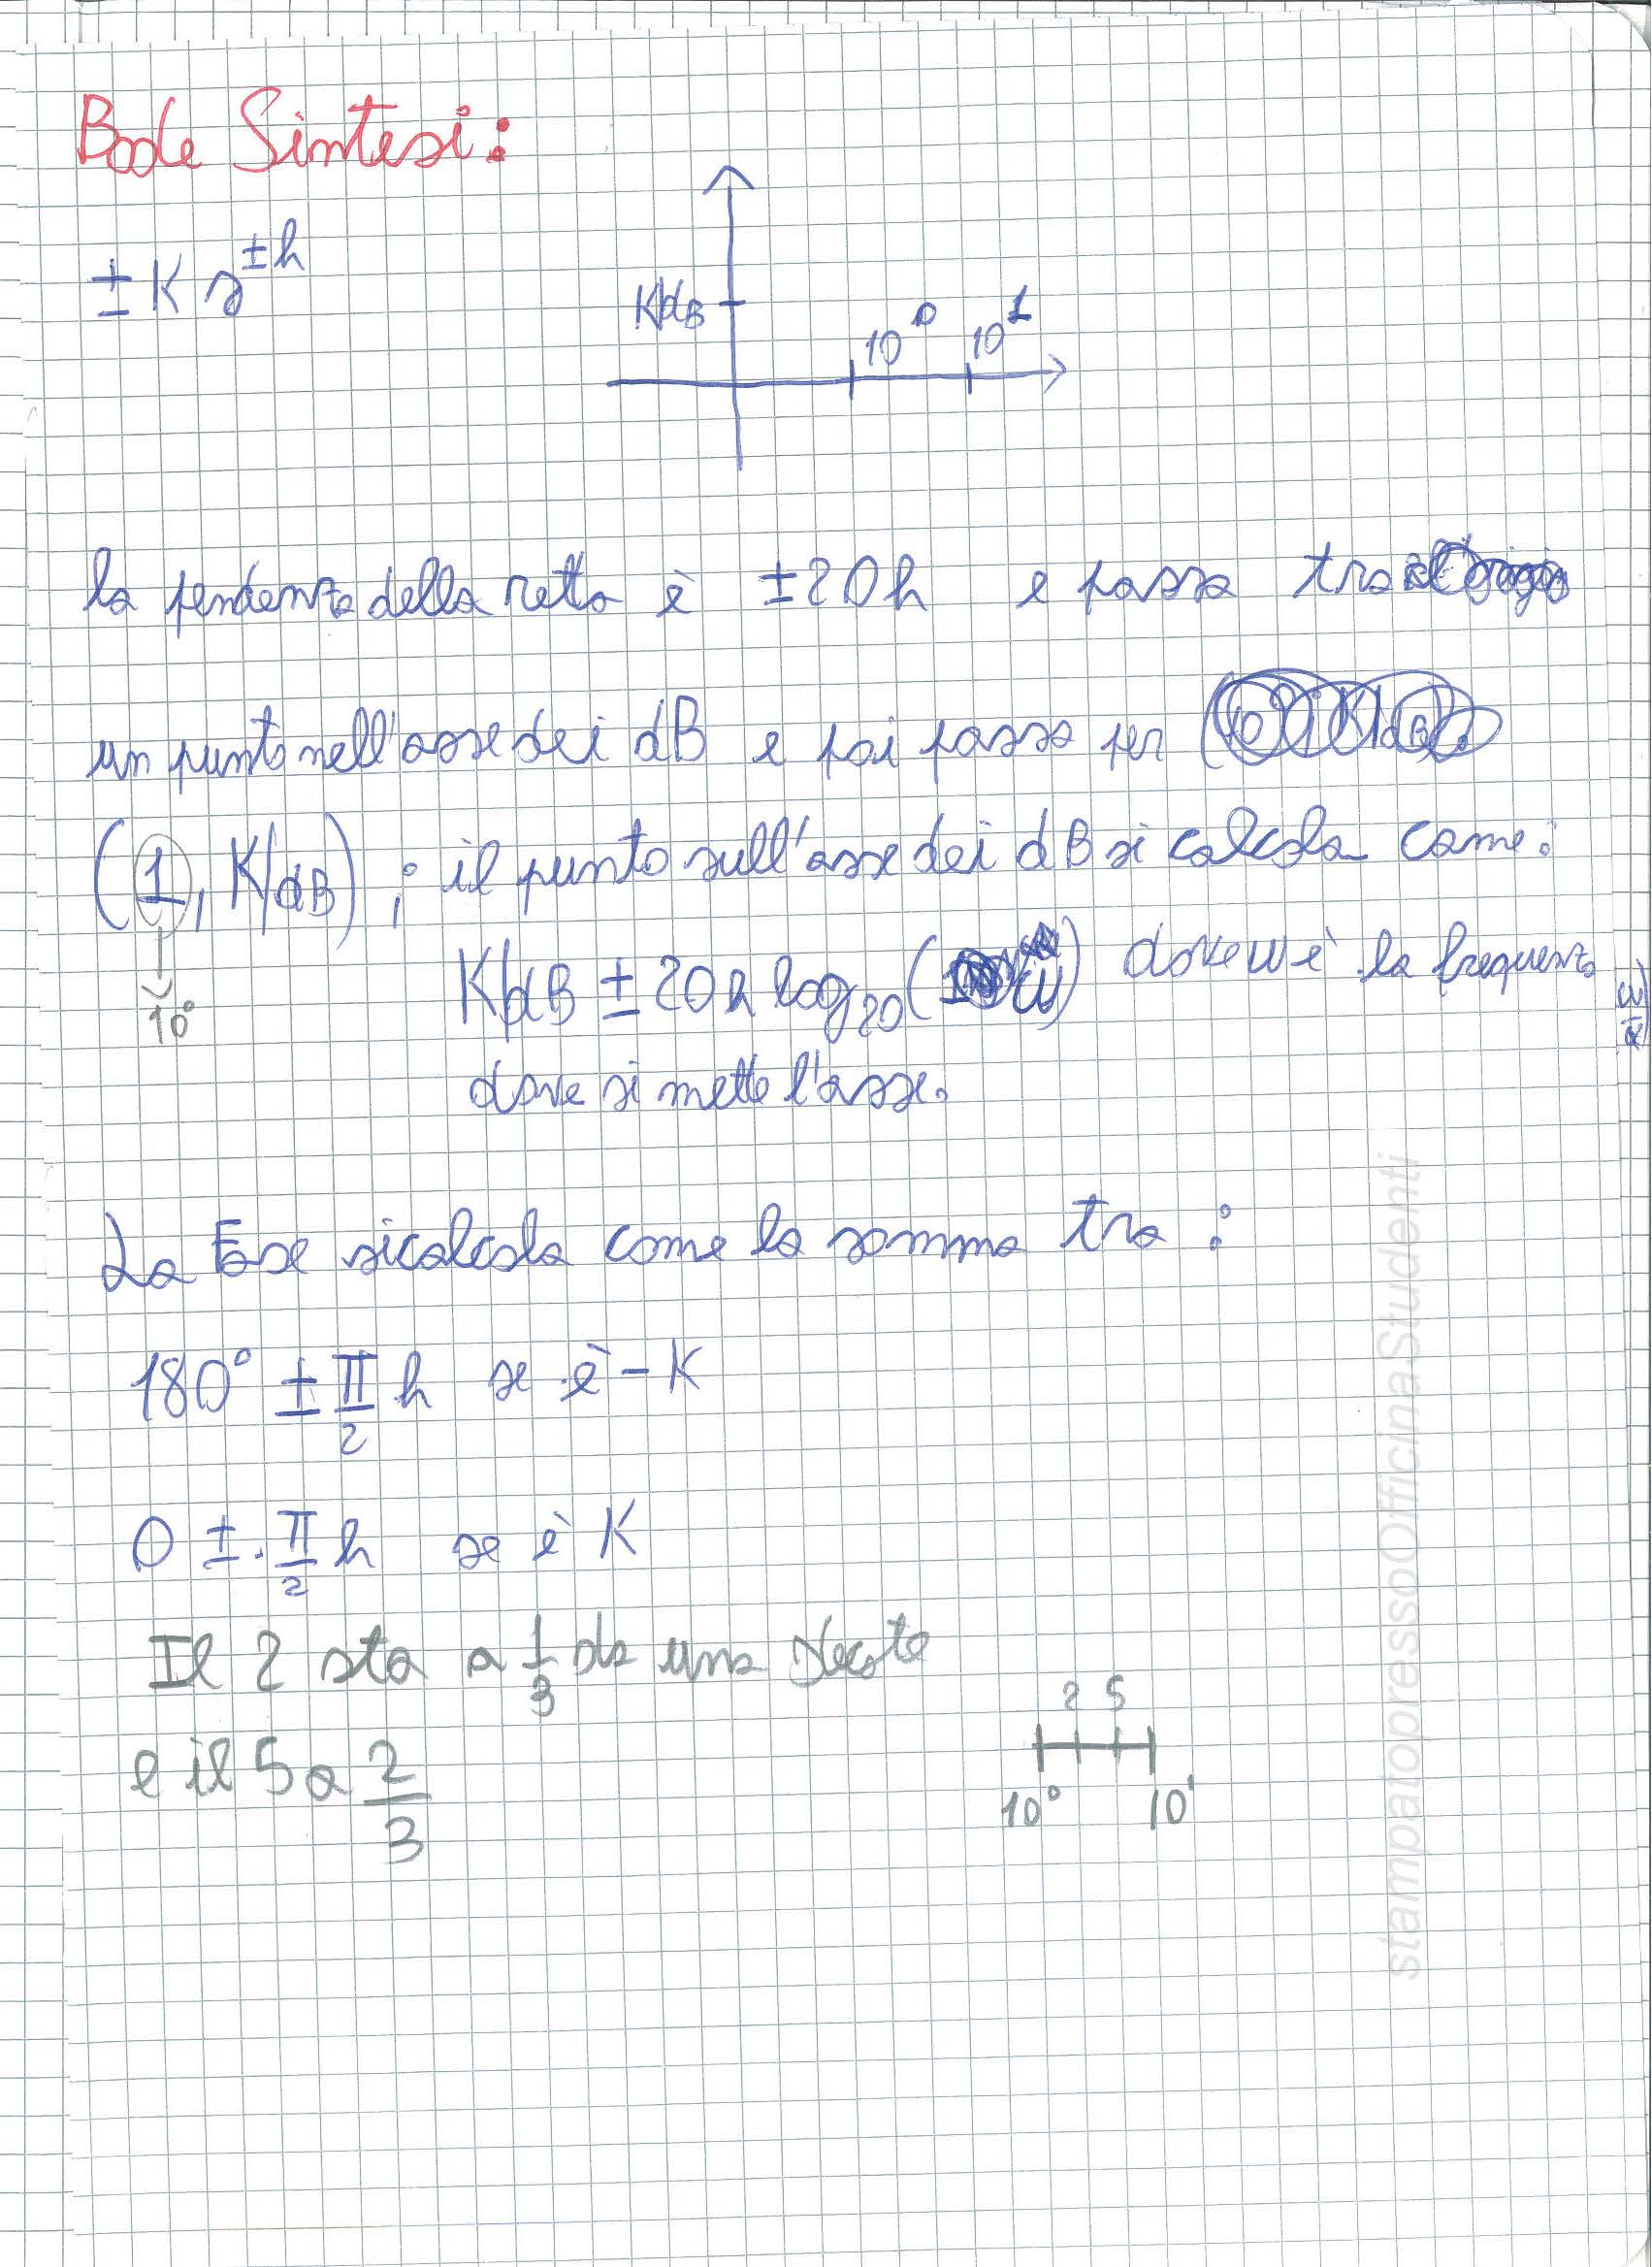 Bode Sintesi:
± K s^±h
K|dB
10^0 10^1
la pendenza della retta è ±20h e passa tra
un punto nell'asse dei dB e poi passa per
(1, K|dB) ; il punto sull'asse dei dB si calcola come:
10^0
K|dB ± 20h log20 ( ω) dove ω è la frequenza
dove si mette l'asse.
La Fase si calcola come la somma tra :
180° ± π/2 h se è - K
0 ± π/2 h se è K
Il 2 sta a 1/3 da una Decate
2 5
e il 5 a 2/3
10^0 10^1
stampatopressoOfficinaStudenti